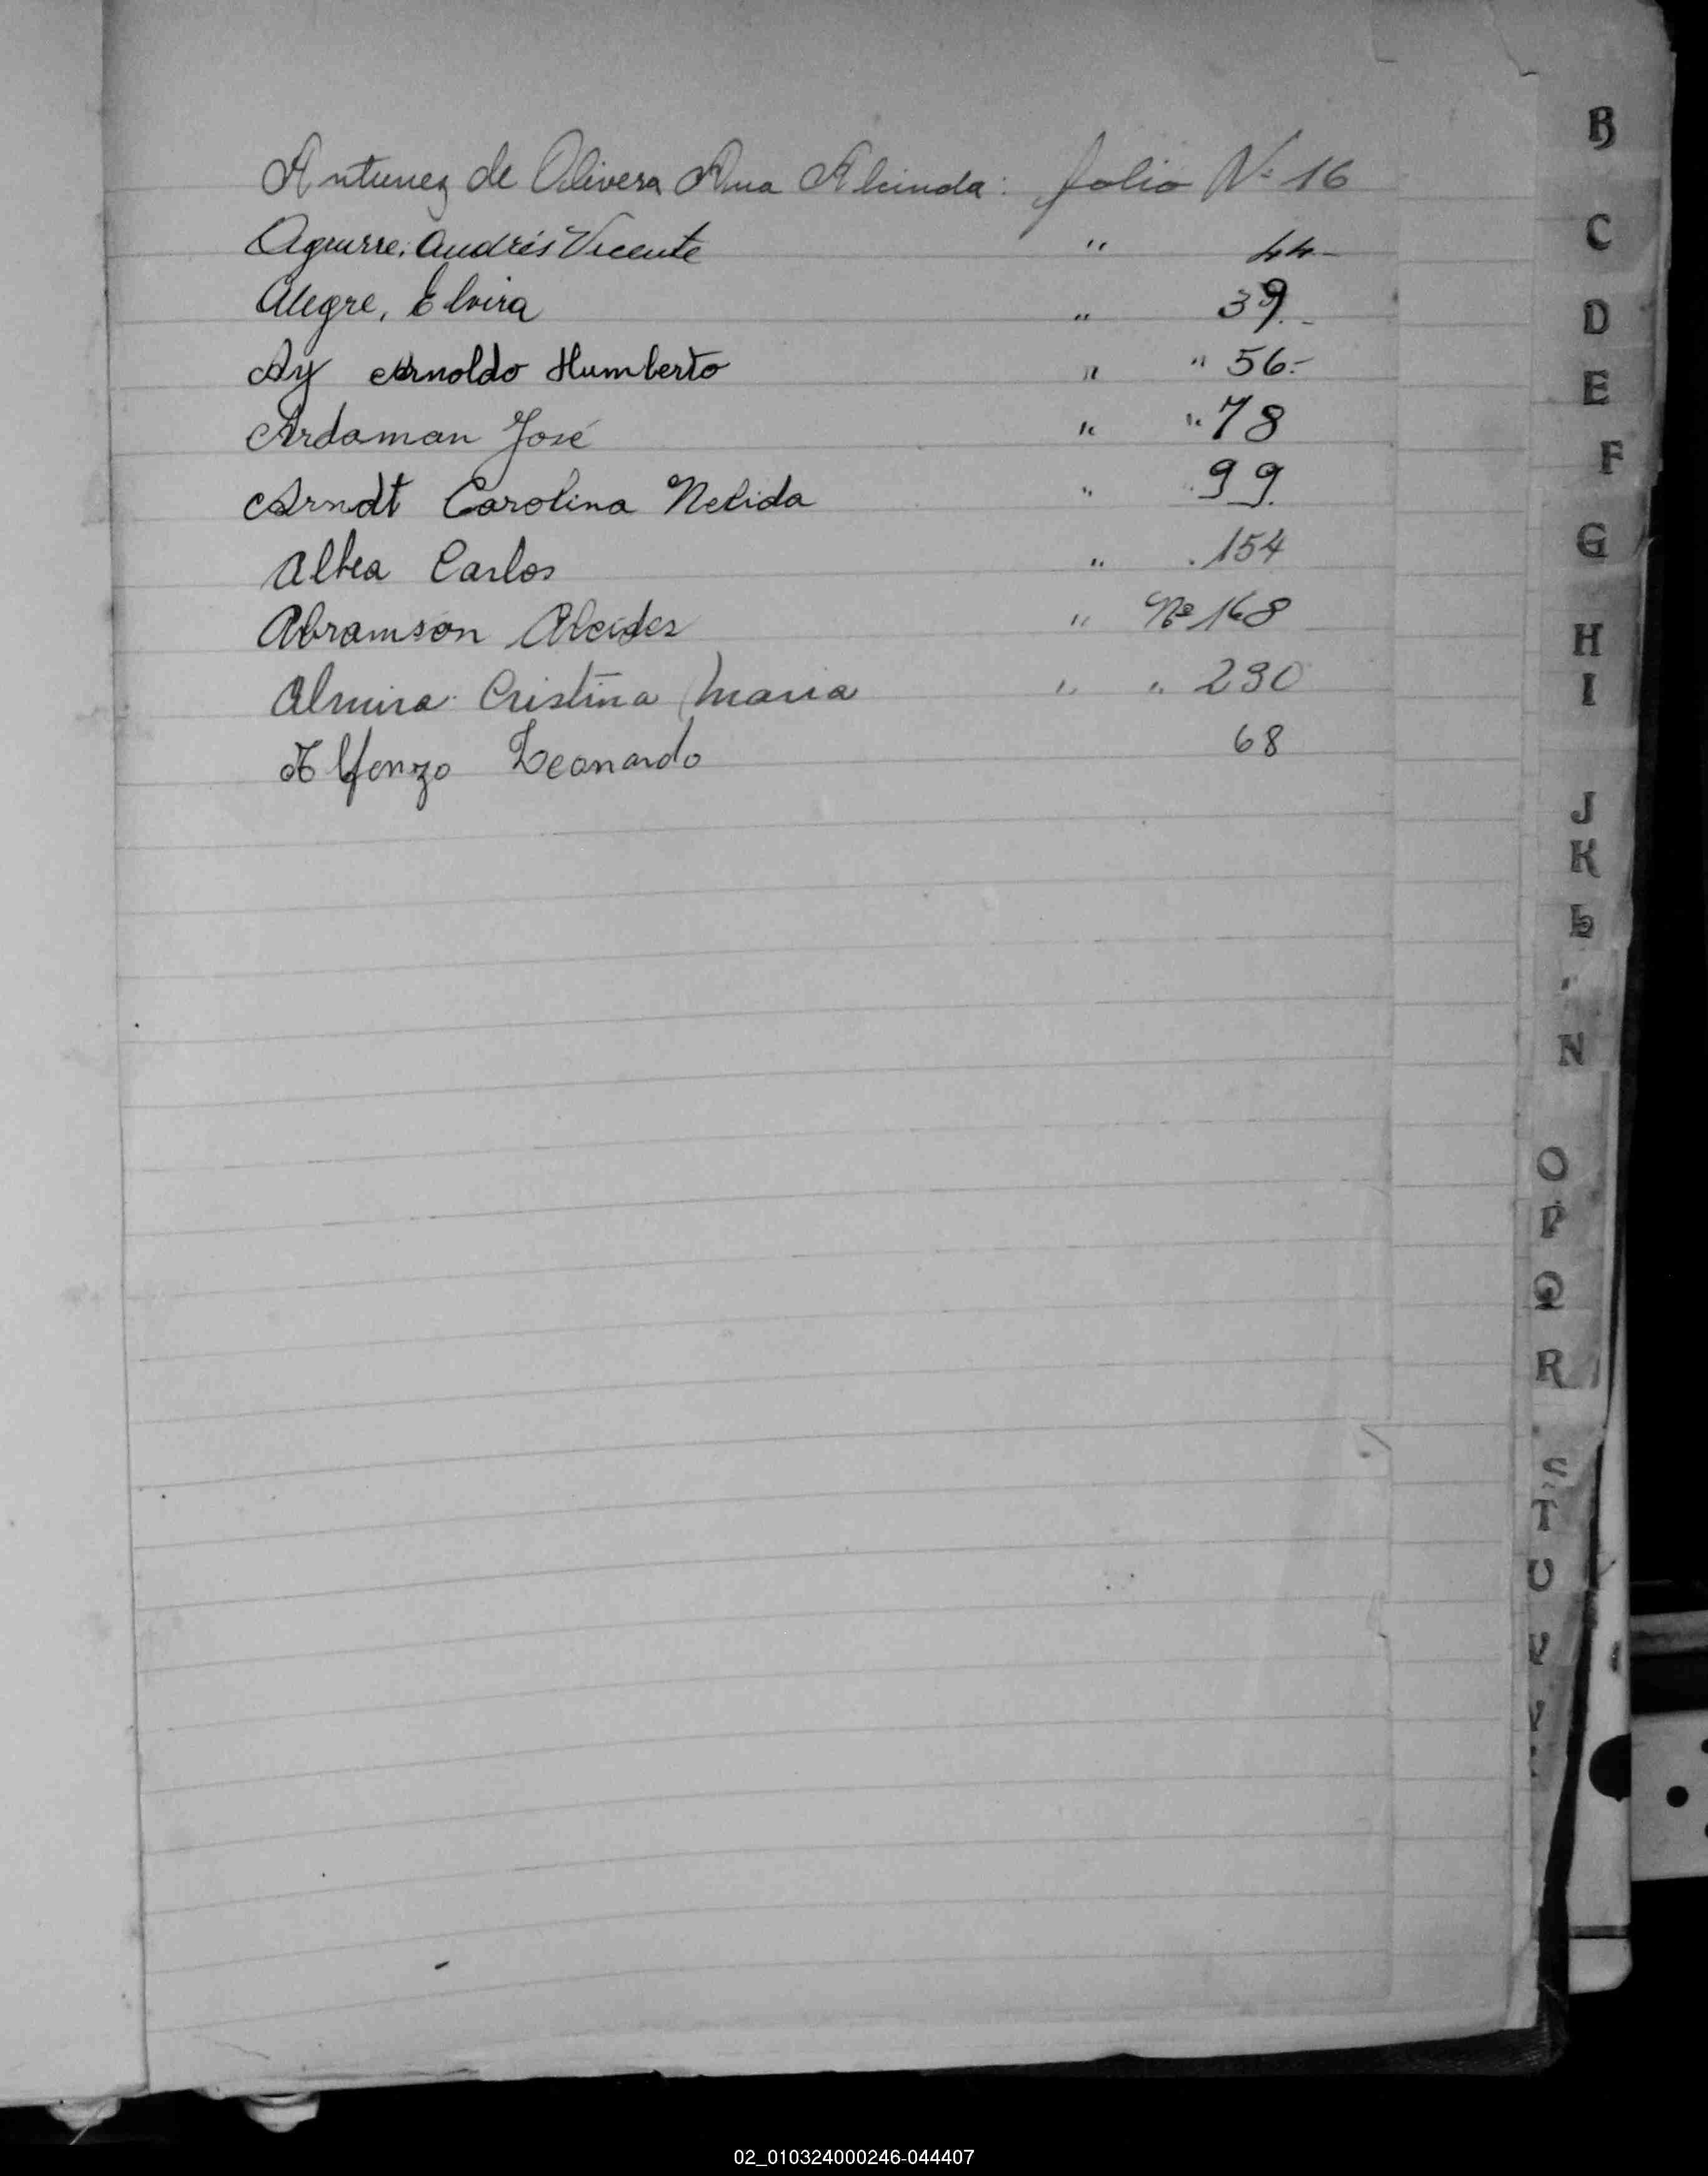 Antunez de Olivera Ana Alcinda: folio Nº 16
Aguirre, Andrés Vicente " 44-
Alegre, Elvira " 39.-
Ay Arnoldo Humberto " " 56.-
Ardaman José " " 78
Arndt Carolina Nelida " 99.
Carlos " . 154
Abramson Alcides " Nº 168
Almira Cristina Maria " " 230
Alfonzo Leonardo 68
B
C
D
E
F
G
H
I
J
K
L
N
O
P
Q
R
S
T
U
V
02_010324000246-044407